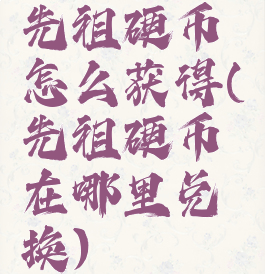 先祖硬币
怎么获得(
先祖硬币
在哪里兑
换)